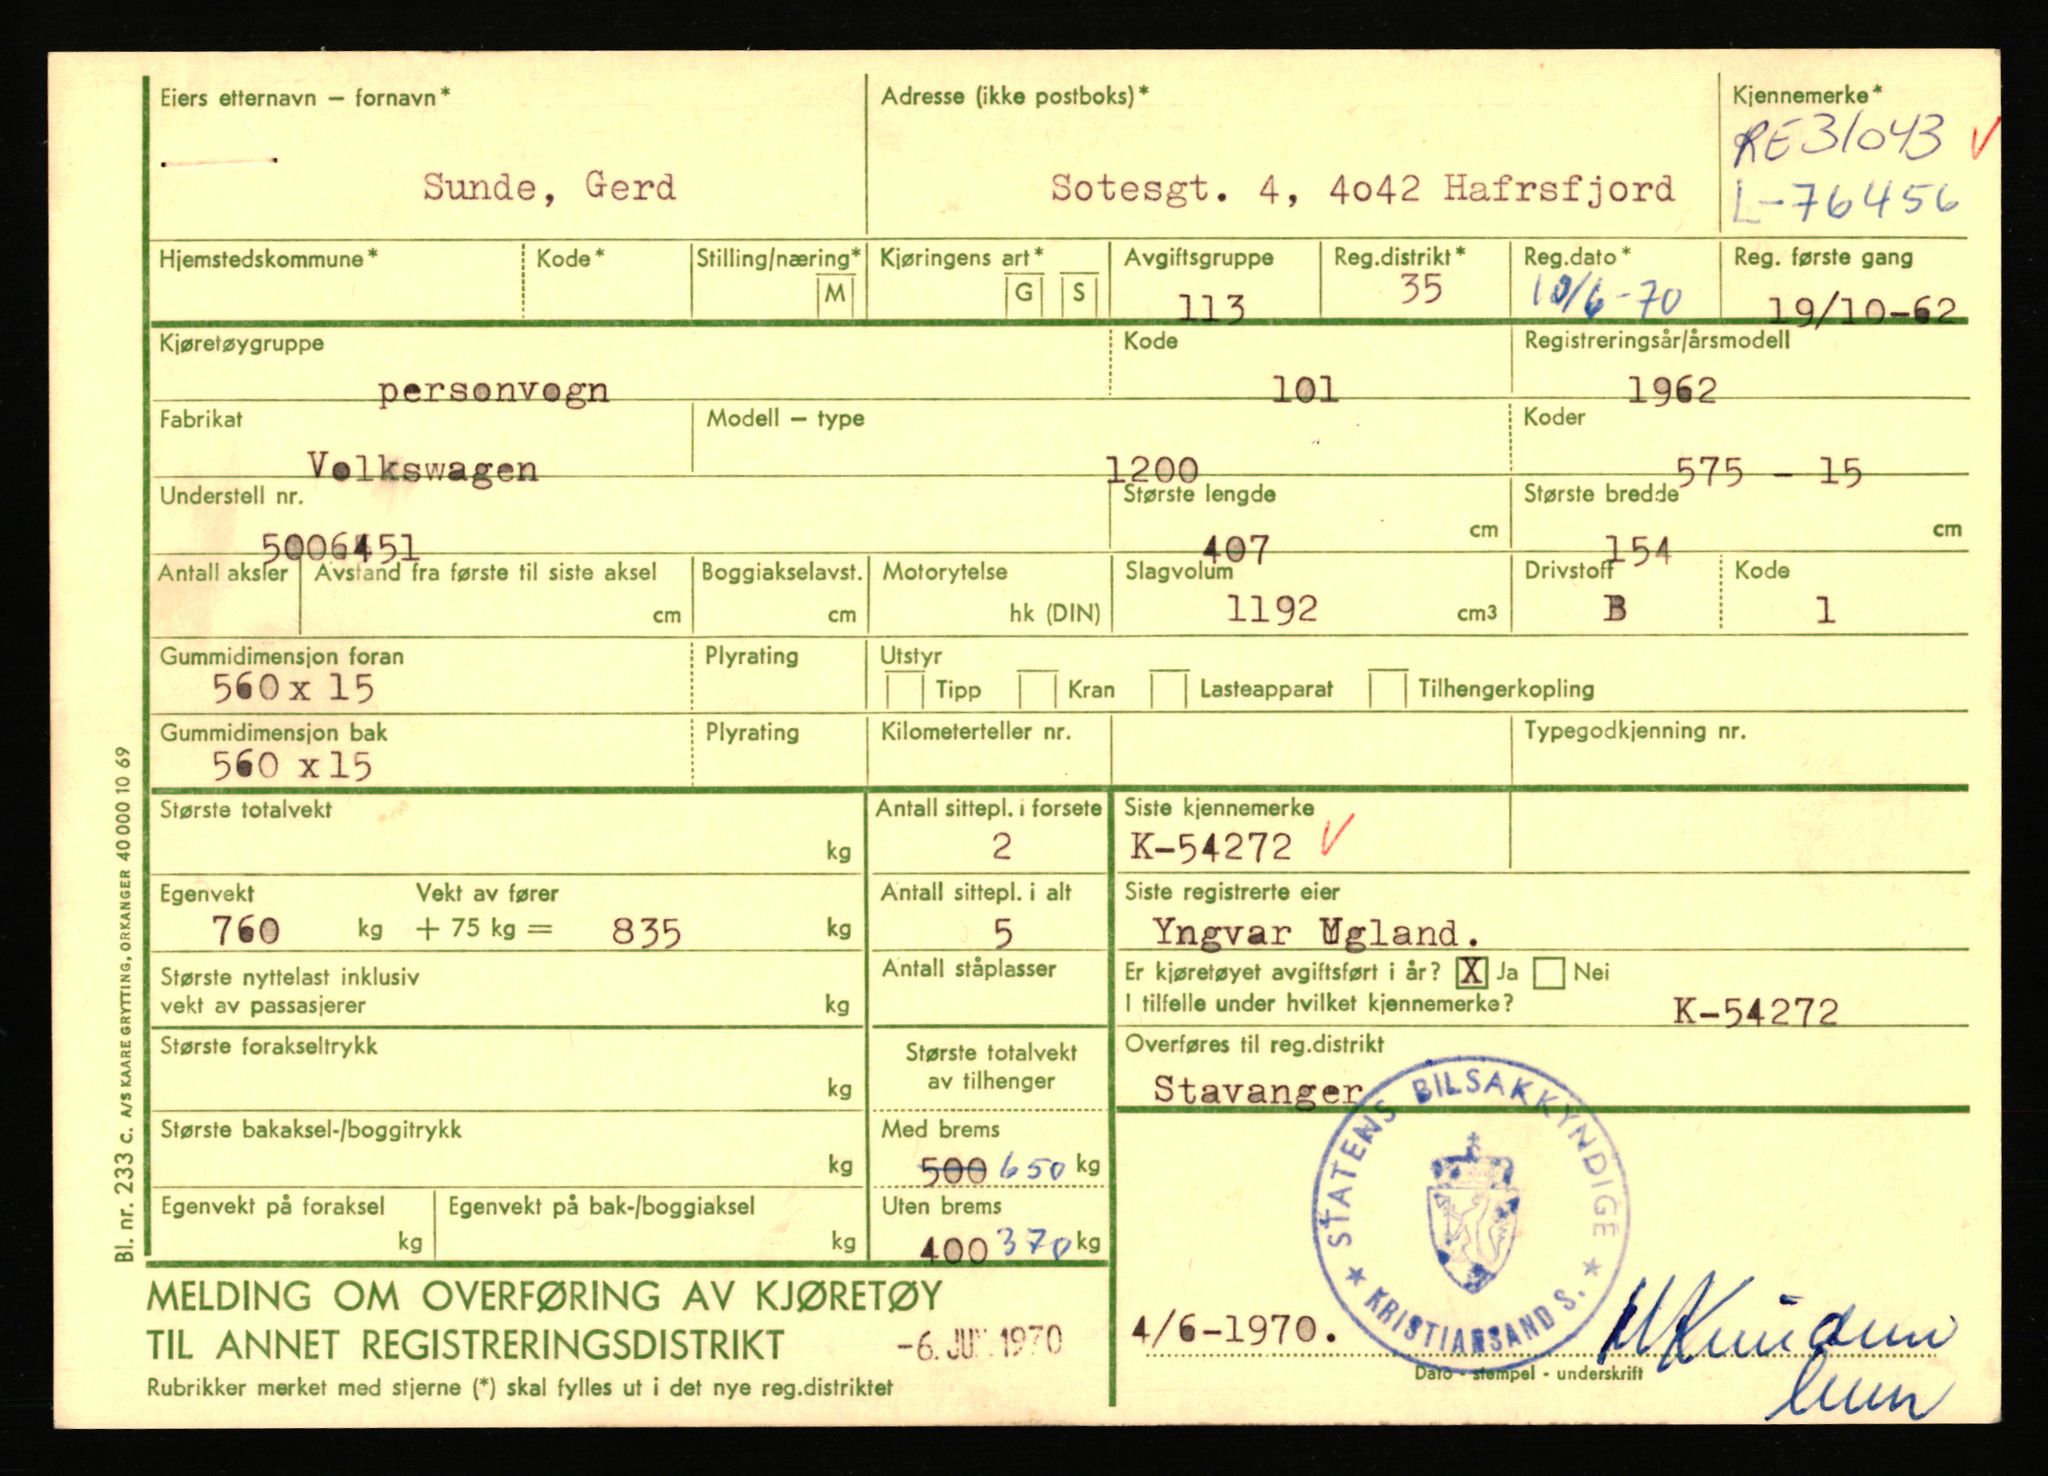 Eiers etternavn – fornavn*
Sunde, Gerd
Adresse (ikke postboks)*
Sotesgt. 4, 4o42 Hafrsfjord
Kjennemerke*
RE31043
L-76456
Hjemstedskommune*
Kode*
Stilling/næring*
M
Kjøringens art*
G S
Avgiftsgruppe
113
Reg.distrikt*
35
Reg.dato*
10/6-70
Reg. første gang
19/10-62
Kjøretøygruppe
personvogn
Kode
101
Registreringsår/årsmodell
1962
Fabrikat
Volkswagen
Modell – type
1200
Koder
575 - 15
Understell nr.
5006451
Største lengde
407 cm
Største bredde
154 cm
Antall aksler
Avstand fra første til siste aksel
cm
Boggiakselavst.
cm
Motorytelse
hk (DIN)
Slagvolum
1192 cm3
Drivstoff
B
Kode
1
Gummidimensjon foran
560 x 15
Plyrating
Utstyr
Tipp Kran Lasteapparat Tilhengerkopling
Gummidimensjon bak
560 x 15
Plyrating
Kilometerteller nr.
Typegodkjenning nr.
Største totalvekt
kg
Antall sittepl. i forsete
2
Siste kjennemerke
K-54272
Egenvekt Vekt av fører
760 kg + 75 kg = 835 kg
Antall sittepl. i alt
5
Siste registrerte eier
Yngvar Ugland.
Største nyttelast inklusiv
vekt av passasjerer kg
Antall ståplasser
Er kjøretøyet avgiftsført i år? X Ja Nei
I tilfelle under hvilket kjennemerke? K-54272
Største forakseltrykk
kg
Største totalvekt
av tilhenger
Overføres til reg.distrikt
Stavanger
Største bakaksel-/boggitrykk
kg
Med brems
500 650 kg
Egenvekt på foraksel
kg
Egenvekt på bak-/boggiaksel
kg
Uten brems
400 370 kg
STATENS BILSAKKYNDIGE
★ KRISTIANSAND S. ★
MELDING OM OVERFØRING AV KJØRETØY
TIL ANNET REGISTRERINGSDISTRIKT
-6. JUN 1970
4/6-1970.
Dato - stempel - underskrift
Rubrikker merket med stjerne (*) skal fylles ut i det nye reg.distriktet
Bl. nr. 233 C. A/S KAARE GRYTTING, ORKANGER 40 000 10 69